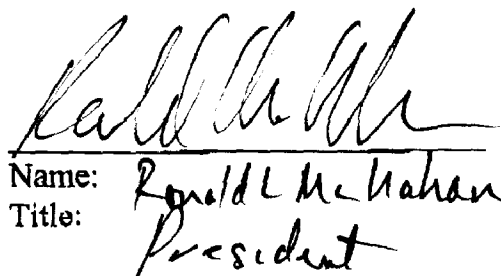 Name: Ronald L McMahan
Title: President